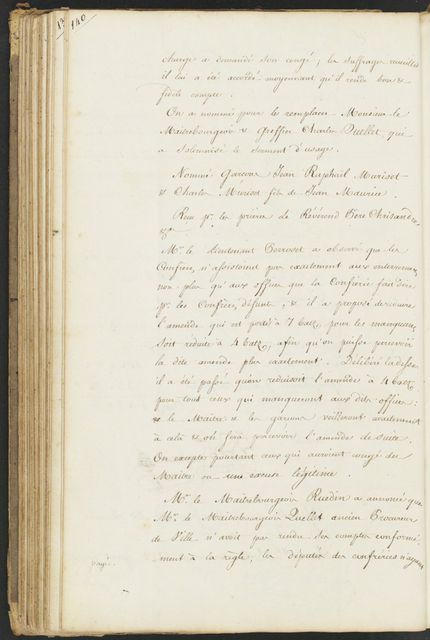 140
charge a demandé son congé, les suffrages recueillis
il lui a été accordé moyennant qu'il rende bon &
fidele compte.
On a nommé pour le remplacer Monsieur le
Maitrebourgeois & Greffier Charles Quellet qui
a solemnisé le serment d'usage.
Nommé Garcons Jean Raphaël Murisot
& Charles Murisot fils de Jean Maurice.
Reçu pr. les prières le Révérend Père
&a.
Mr. le Lieutenant Perroset a observé que les
Confrères n'assistoient pas exactement aux enterremens
non plus qu'aux offices que la Confrérie fait dire
pr. les Confrères défunts, & il a proposé
l'amende qui est porté à 7 batz pour les manquans
soit réduite à 4 batz, afin qu'on puisse percevoir
la dite amende plus exactement. Délibéré là dessus
il a été passé qu'on réduisoit l'amende à 4 batz
pour tout ceux qui manqueront aux dits offices:
& le Maître & les garçons veilleront exactement
à celà & où fera percevoir l'amende de suite.
On excepte pourtant ceux qui auroient congé du
Maître ou une excuse légitime.
Mr. le Maitrebourgeois Ruedin a annoncé que
Mr. le Maitrebourgeois Quellet ancien Procureur
de Ville n'avoit pas rendu ses comptes conformé
-ment à la règle; les députés des confréries n'ayant